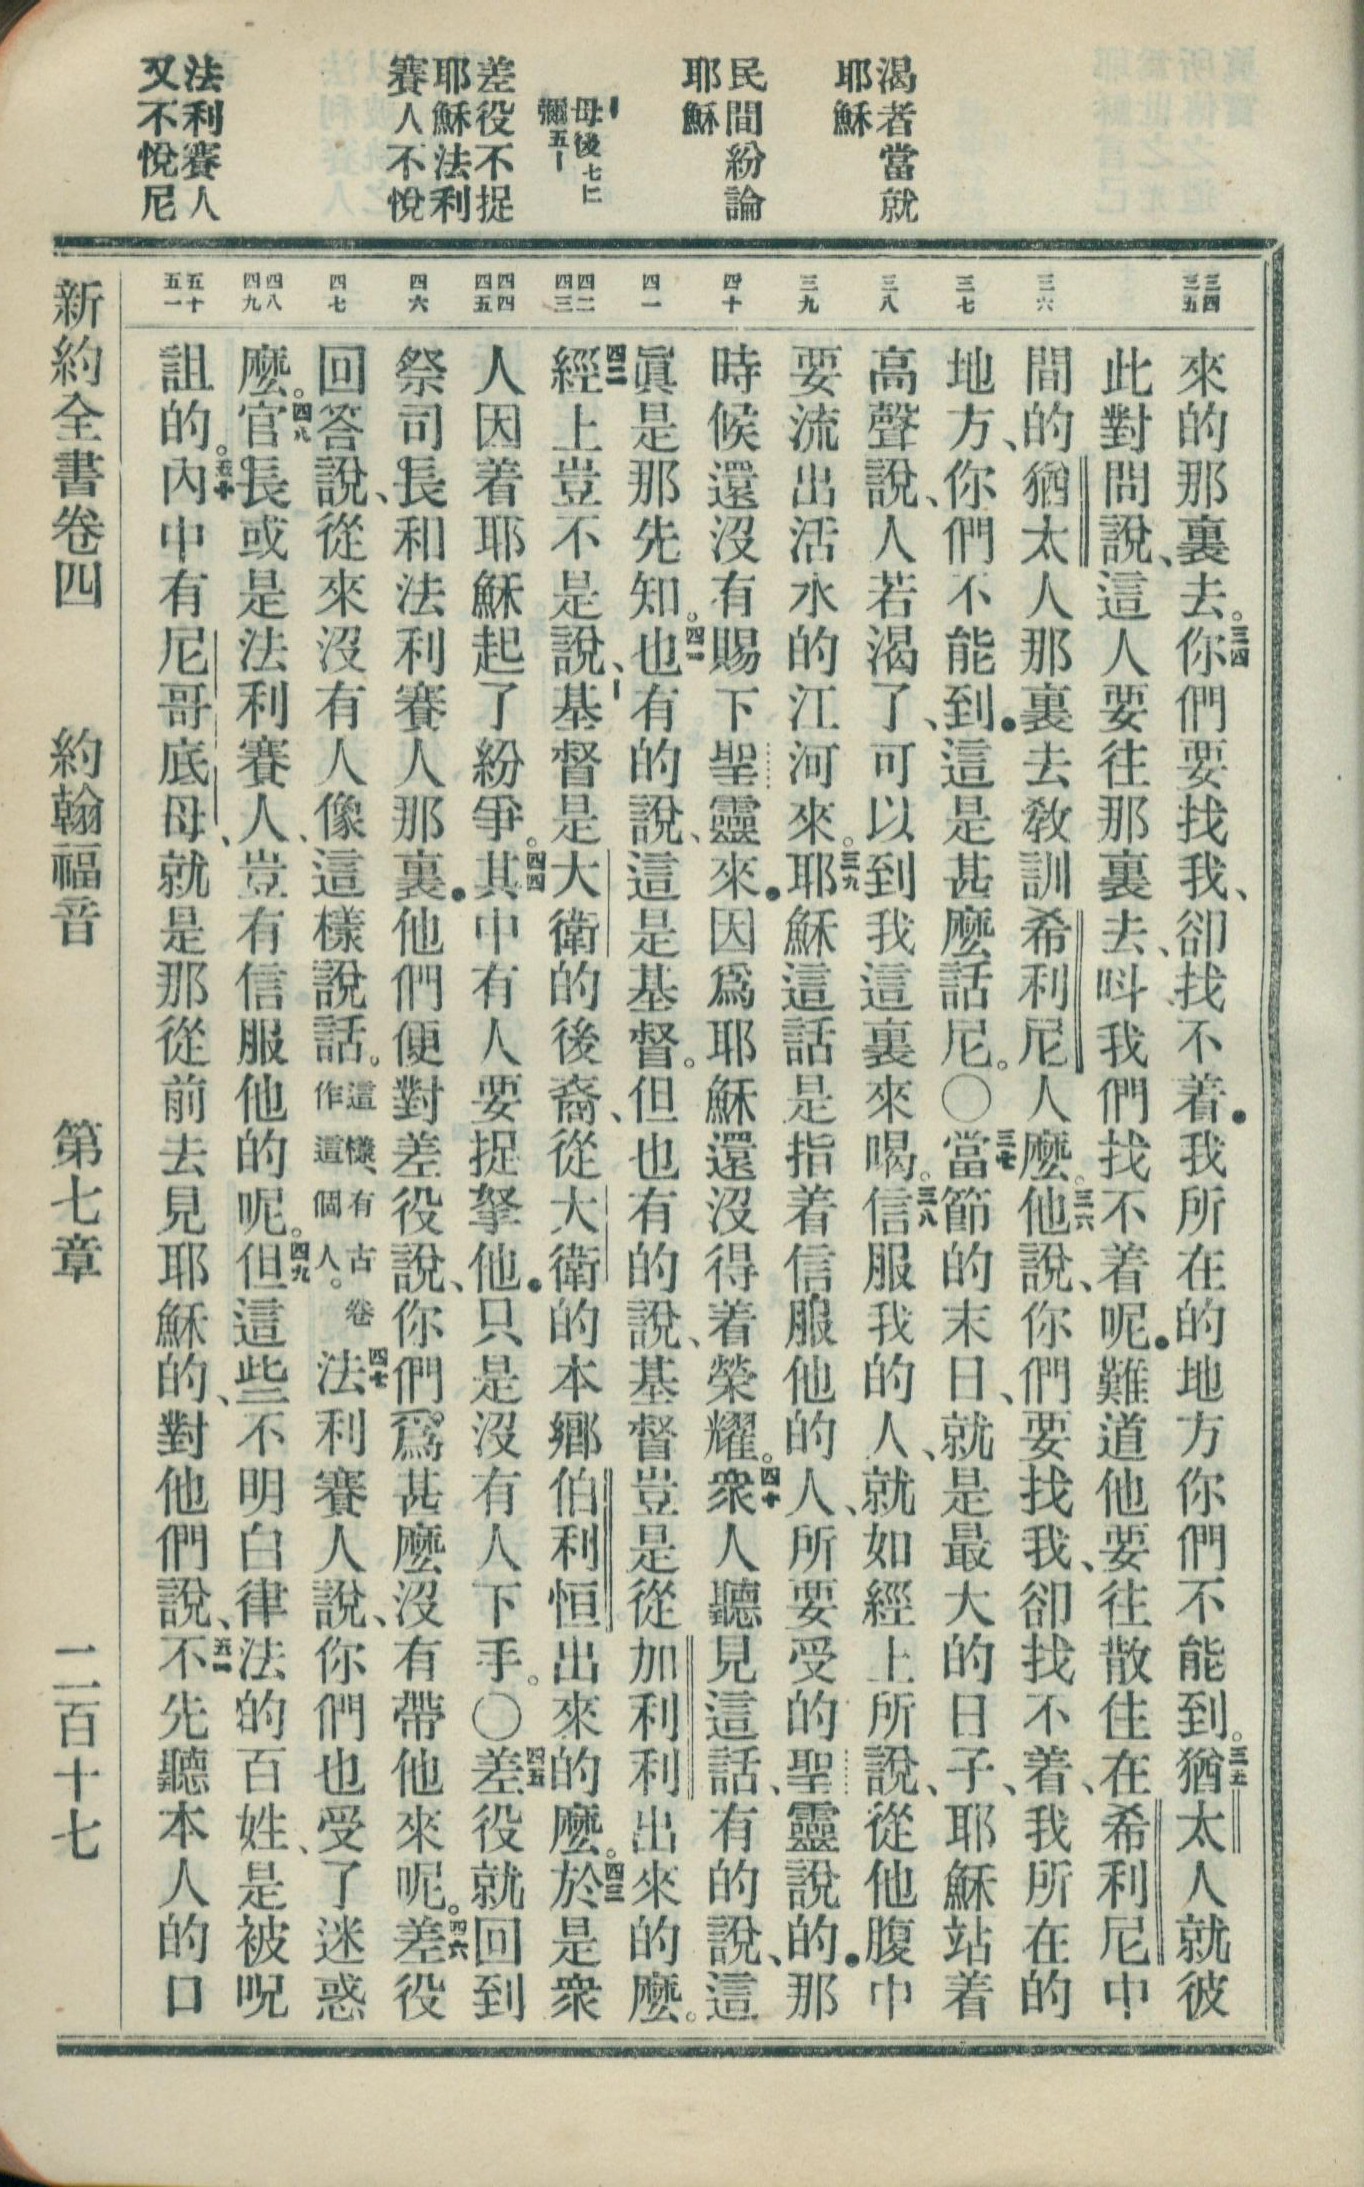 渴者當就
耶穌
民間紛論
耶穌
母後七二
彌五一
差役不捉
耶穌法利
賽人不悅
法利賽人
又不悅尼
三四
三五
三六
三七
三八
三九
四十
四一
四二
四三
四四
四五
四六
四七
四八
四九
五十
五一
來的那裏去。三四你們要找我、卻找不着●我所在的地方你們不能到。三五猶太人就彼
此對問說、這人要往那裏去、呌我們找不着呢●難道他要往散住在希利尼中
間的猶太人那裏去敎訓希利尼人麽。三六他說、你們要找我、卻找不着、我所在的
地方、你們不能到●這是甚麽話尼。○三七當節的末日、就是最大的日子、耶穌站着
高聲說、人若渴了、可以到我這裏來喝。三八信服我的人、就如經上所說、從他腹中
要流出活水的江河來。三九耶穌這話是指着信服他的人、所要受的聖靈說的●那
時候還沒有賜下聖靈來●因爲耶穌還沒得着榮耀。四十衆人聽見這話、有的說、這
眞是那先知。四一也有的說、這是基督。但也有的說、基督豈是從加利利出來的麽。
四二經上豈不是說、基督是大衛的後裔、從大衛的本鄉伯利恒出來的麽。四三於是衆
人因着耶穌起了紛爭。四四其中有人要捉拏他●只是沒有人下手。○四五差役就回到
祭司長和法利賽人那裏●他們便對差役說、你們爲甚麽沒有帶他來呢。四六差役
回答說、從來沒有人像這樣說話。這樣、有古卷作這個人。四七法利賽人說、你們也受了迷惑
麽。四八官長或是法利賽人、豈有信服他的呢。四九但這些不明白律法的百姓、是被呪
詛的。五十內中有尼哥底母、就是那從前去見耶穌的、對他們說、五一不先聽本人的口
新約全書卷四 約翰福音 第七章 二百十七